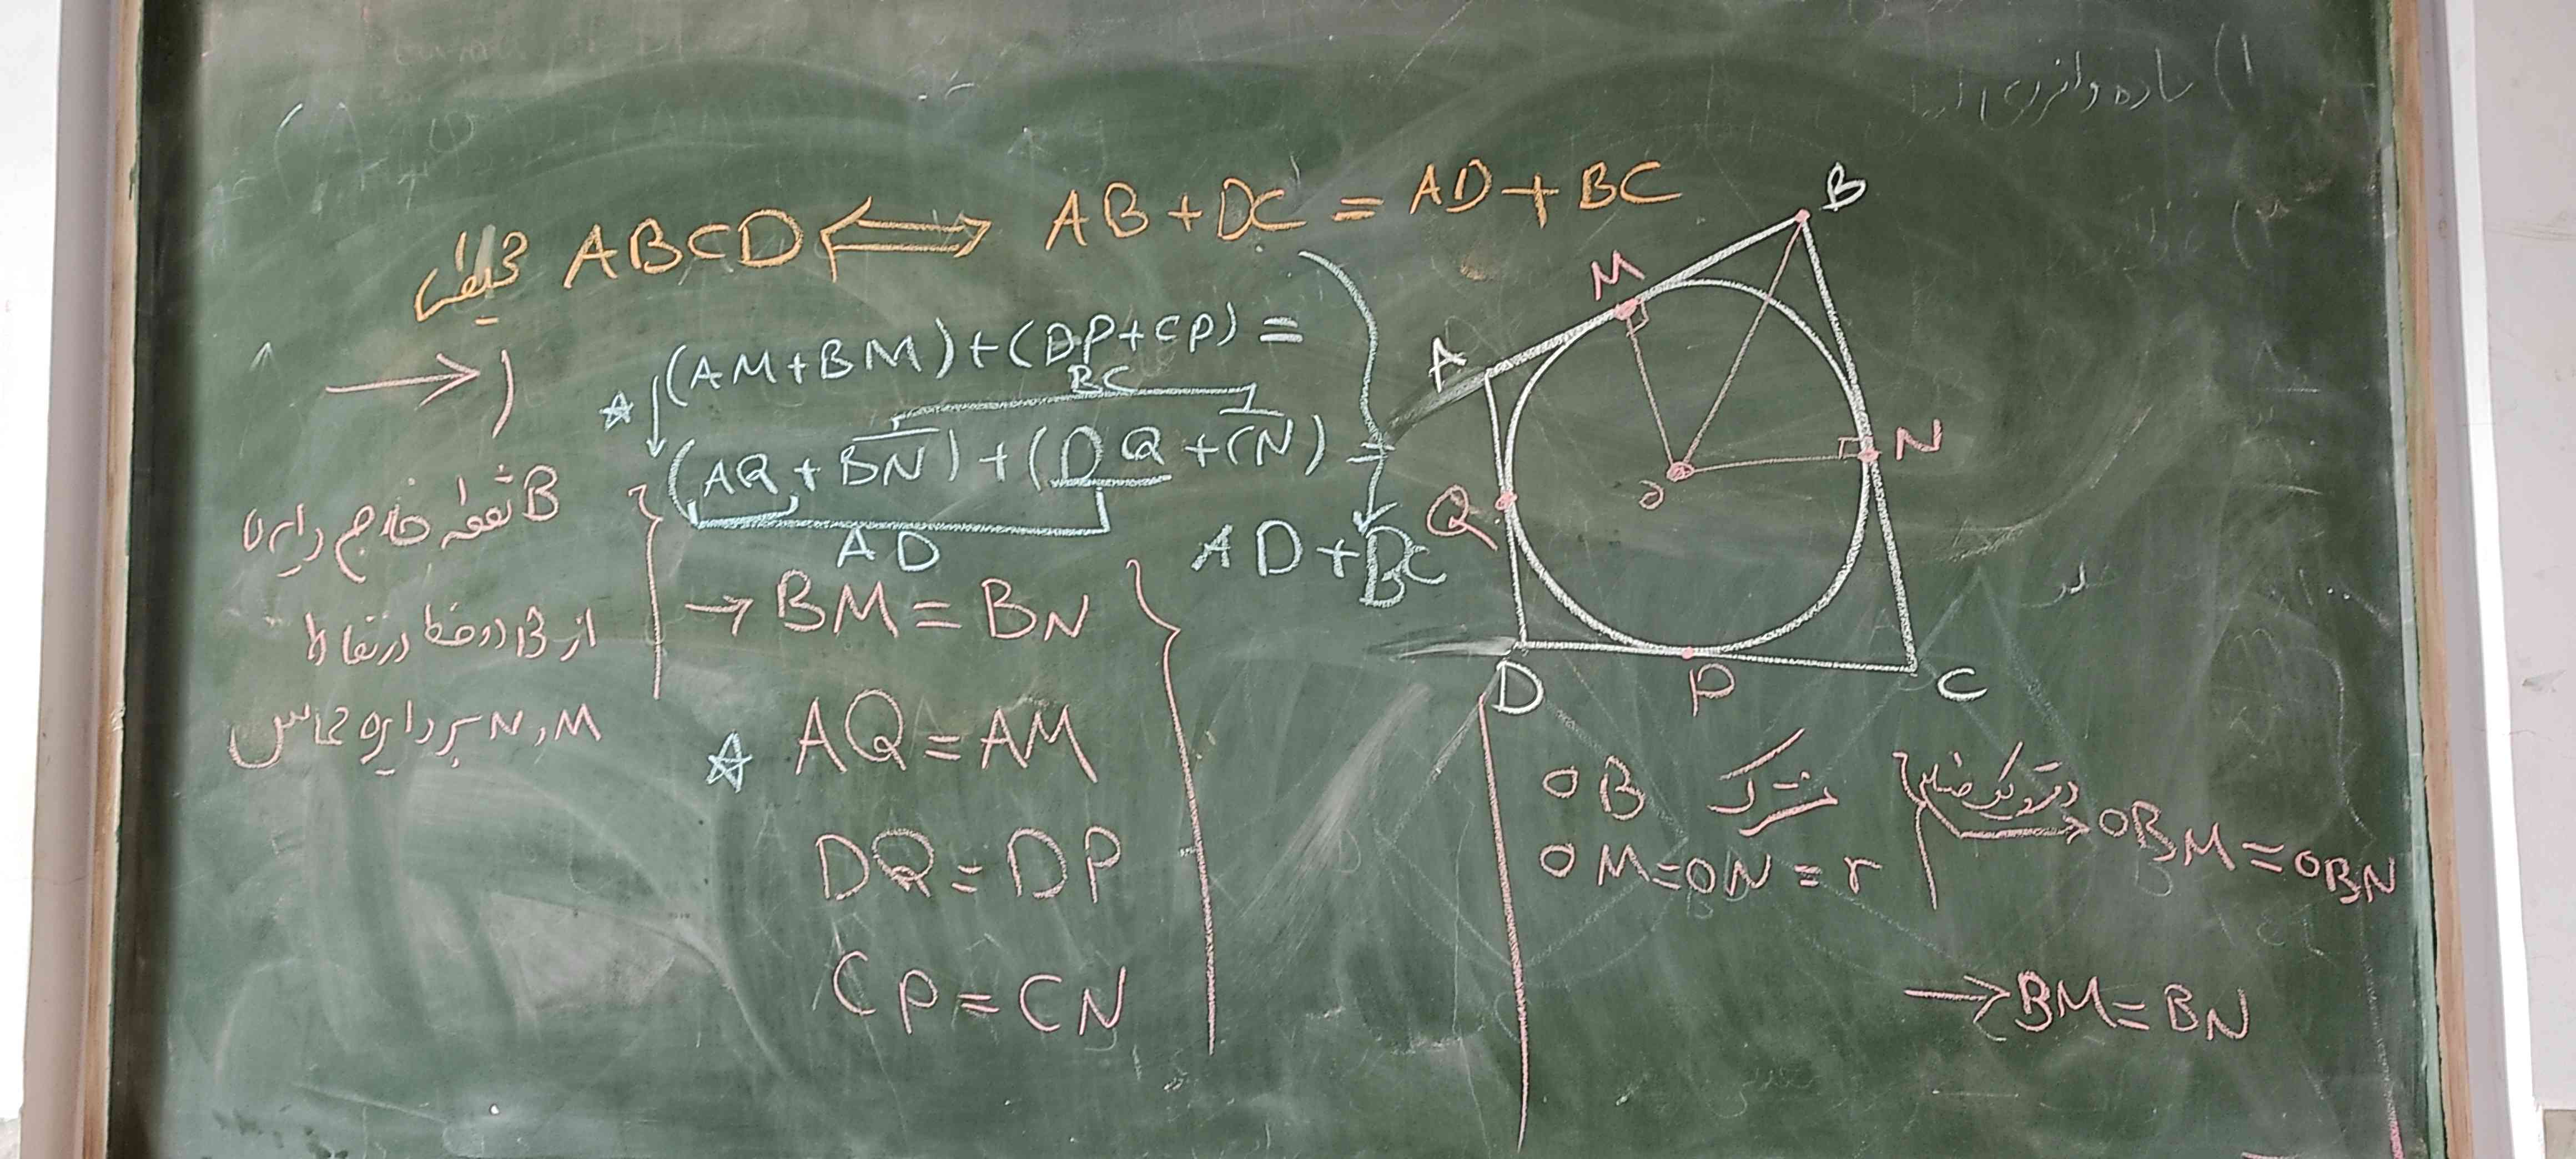 ABCD محیطی ⟺ AB + DC = AD + BC
→)
(AM + BM) + (DP + CP) =
BC
☆ ↓ (AQ + BN) + (DQ + CN) =
AD
AD + BC
B نقطه خارج دایره
از B دو خط در نقاط
M و N بر دایره مماس
→ BM = BN
☆ AQ = AM
DQ = DP
CP = CN
B
M
A
N
O
Q
D
P
C
OB مشترک
OM = ON = r
وتر و یک ضلع
OBM = OBN
→ BM = BN